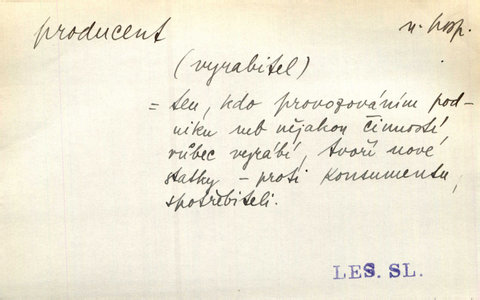 producent
n. hosp.
(vyrabitel)
= ten, kdo provozováním pod-
niku neb nějakou činností
vůbec vyrábí, tvoří nové
statky - proti konsumentu,
spotřebiteli.
LES. SL.